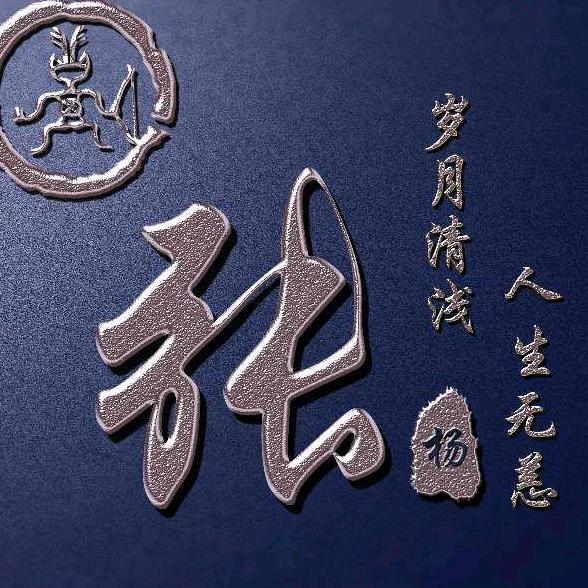 张
人生无恙
岁月清浅
杨